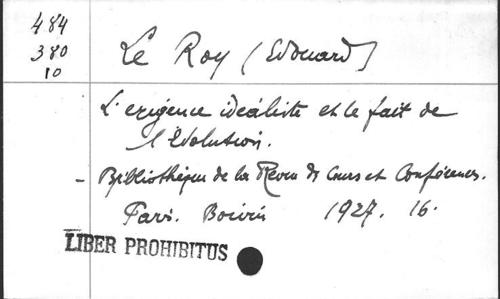 484
380
10
Le Roy (Edouard)
L'exigence idéaliste et le fait de
l'Evolution.
- Bibliothèque de la Revue des Cours et Conférences.
Paris. Boivin 1927. 16.
LIBER PROHIBITUS